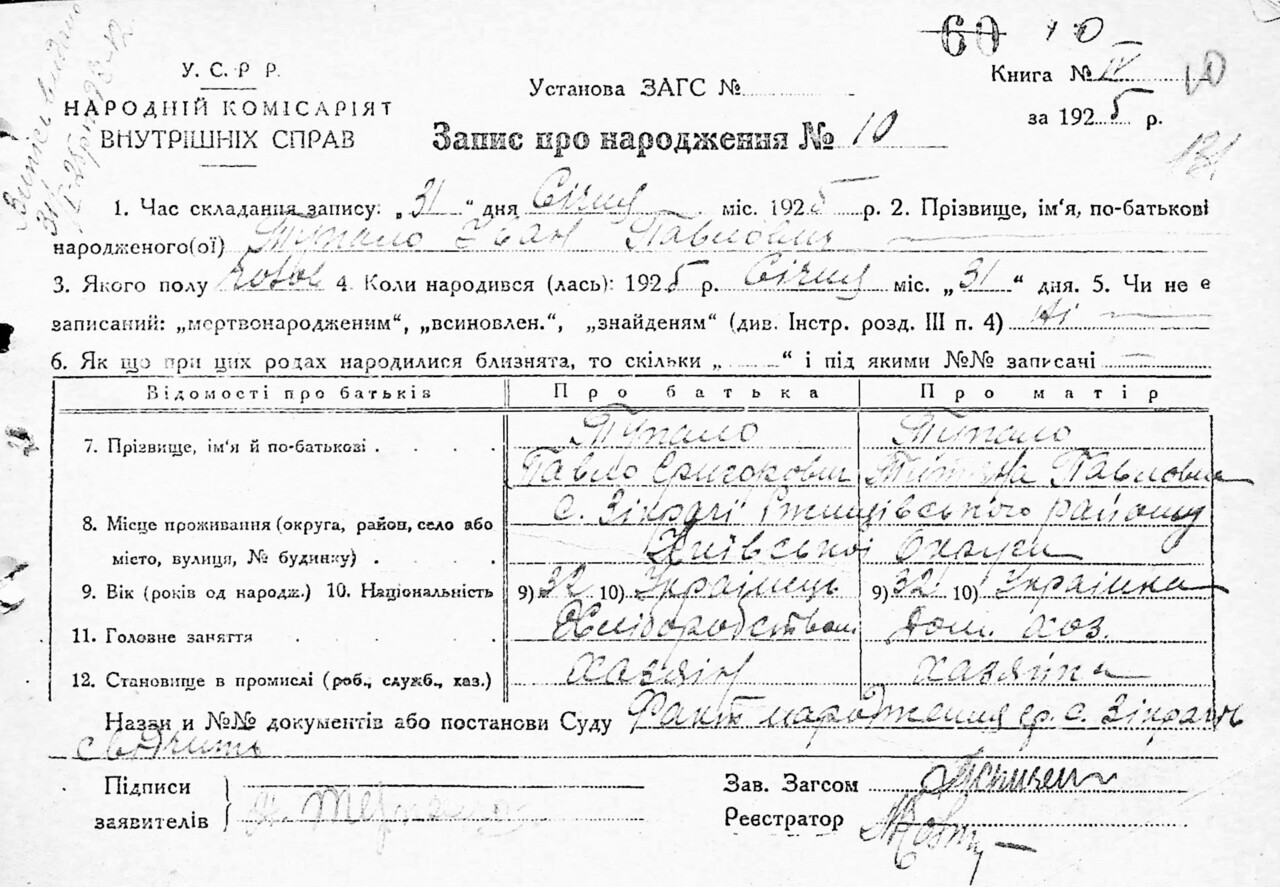 60 10
У. С. Р Р.
НАРОДНІЙ КОМІСАРІЯТ
ВНУТРІШНІХ СПРАВ
Установа ЗАГС №
Книга № IV
10
за 1925 р.
Запис про народження № 10
1. Час складання запису: „31“ дня Січня міс. 1925 р. 2. Прізвище, ім'я, по-батькові
народженого(ої) Тупало Іван Павлович
3. Якого полу чолов 4. Коли народився (лась): 1925 р. Січня міс. „31“ дня. 5. Чи не є
записаний: „мертвонародженим“, „всиновлен.“, „знайденям“ (див. Інстр. розд. III п. 4) Ні —
6. Як що при цих родах народилися близнята, то скільки „ — “ і під якими №№ записані —
Відомості про батьків Про батька Про матір
7. Прізвище, ім'я й по-батькові Тупало Тупало
Павло Григорович Тетяна Павловна
8. Місце проживання (округа, район, село або с. Зікрачі Ржищівського району
місто, вулиця, № будинку) Київської Округи
9. Вік (років од народж.) 10. Національність 9) 32 10) Українець 9) 32 10) Українка
11. Головне заняття Хліборобством Дом. хоз.
12. Становище в промислі (роб., служб., хаз.) хазяїн хазяйка
Назви и №№ документів або постанови Суду Факт народження гр. с. Зікрачь
свідчить
Підписи
заявителів
Зав. Загсом
Реєстратор